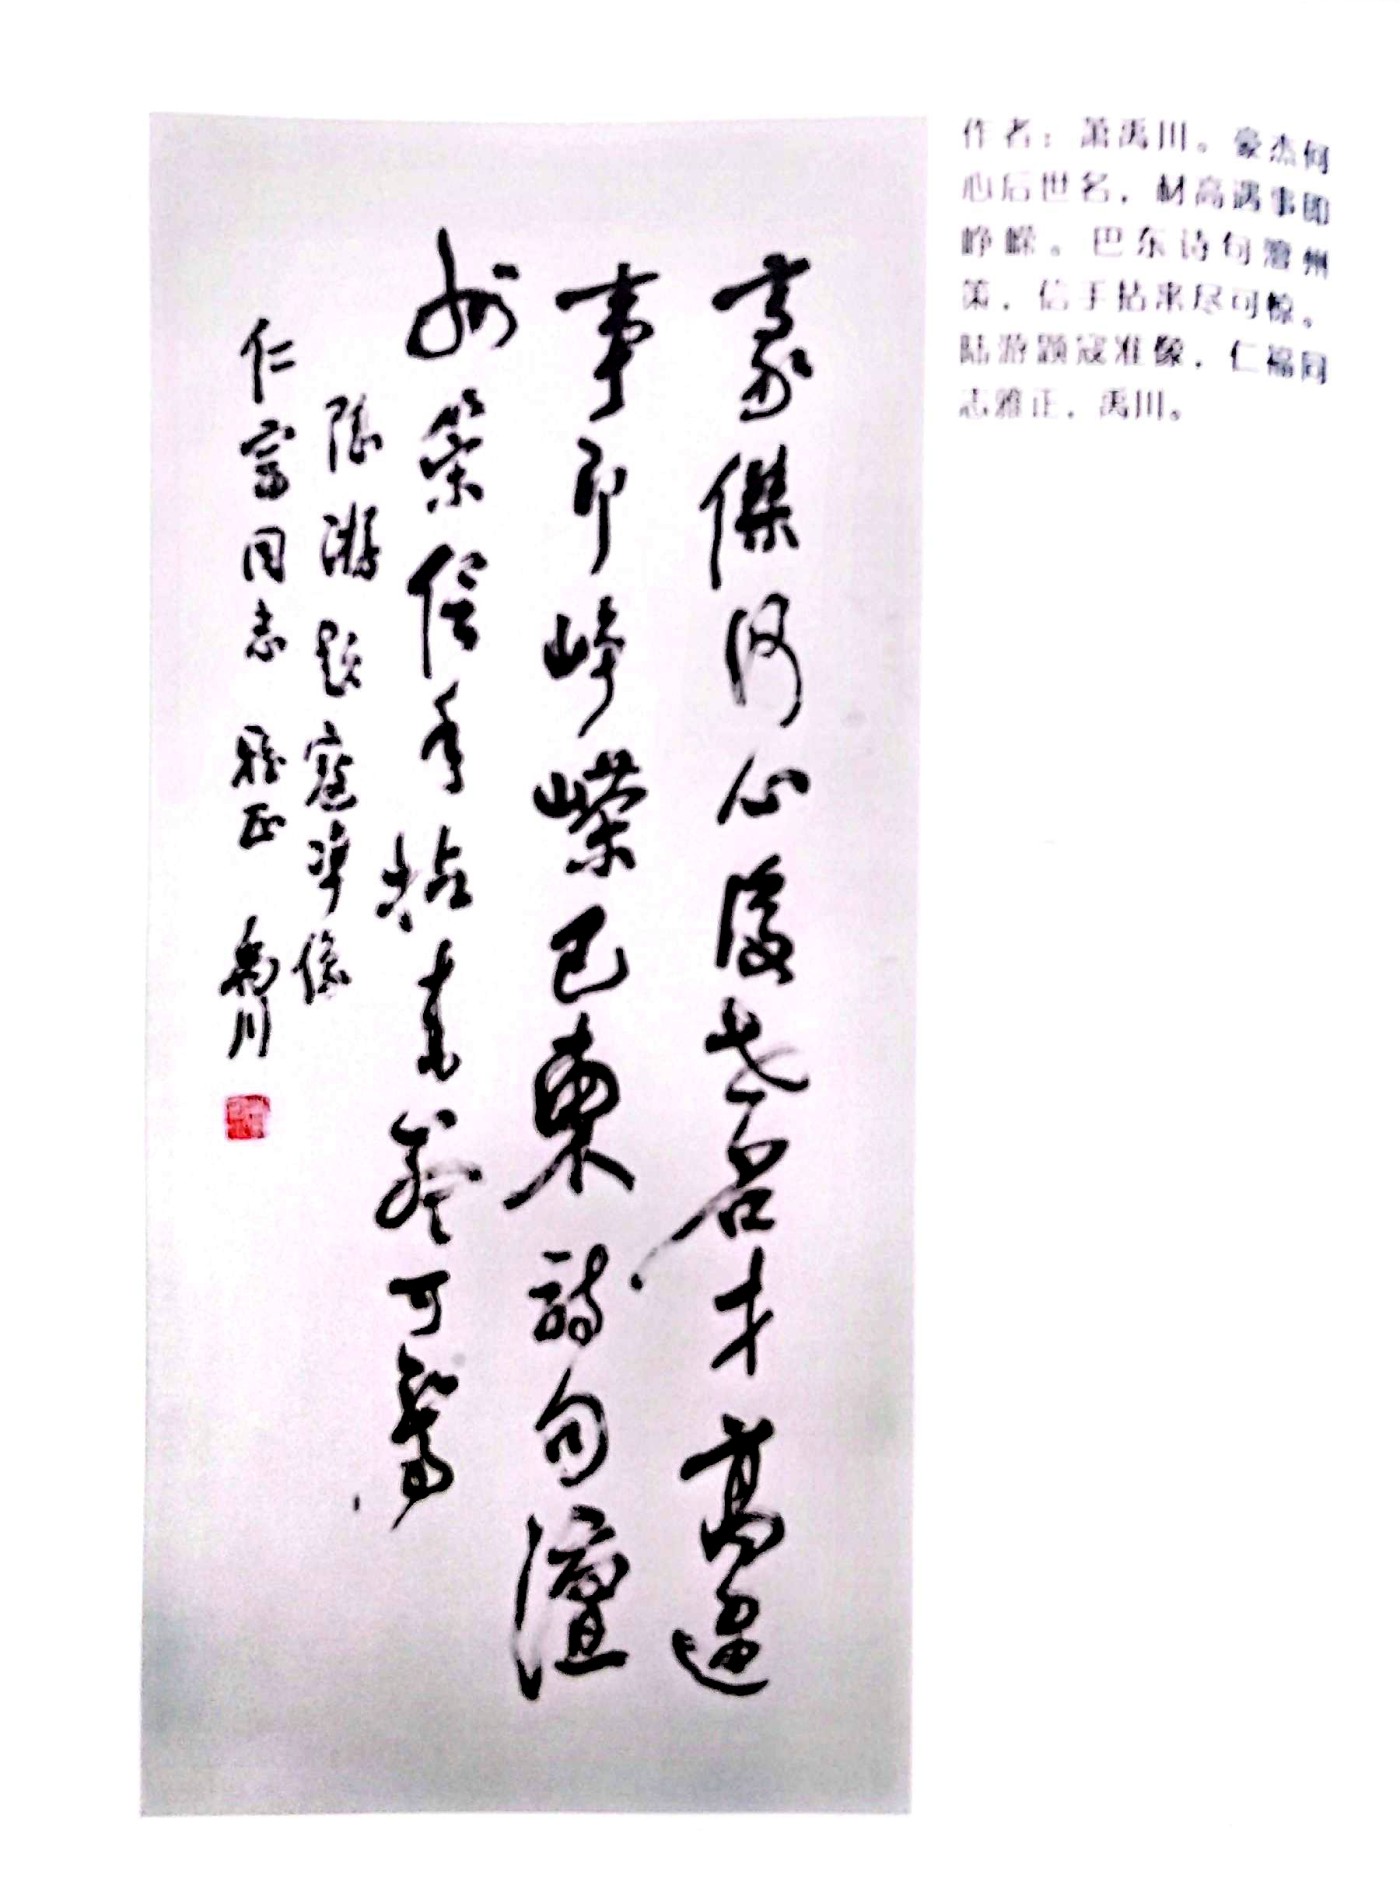 豪傑何心後世名才高遇
事即崢嶸巴東詩句澶
州策信手拈來盡可驚
陸游題寇準像
仁富同志雅正 禹川
作者：萧禹川。豪杰何
心后世名，材高遇事即
峥嵘。巴东诗句澶州
策，信手拈来尽可惊。
陆游题寇准像，仁福同
志雅正，禹川。